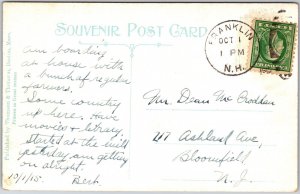 SOUVENIR POST CARD
FRANKLIN
OCT 1
1 PM
N.H.
Am boarding
at house with
a bunch of regular
farmers.
Some country
up here. Have
movies + library
started at the mill
yesterday, am getting
on alright.
10/1/15 Bert
Mrs. Dean Mc
47 Ashland Ave,
Bloomfield
N. J.